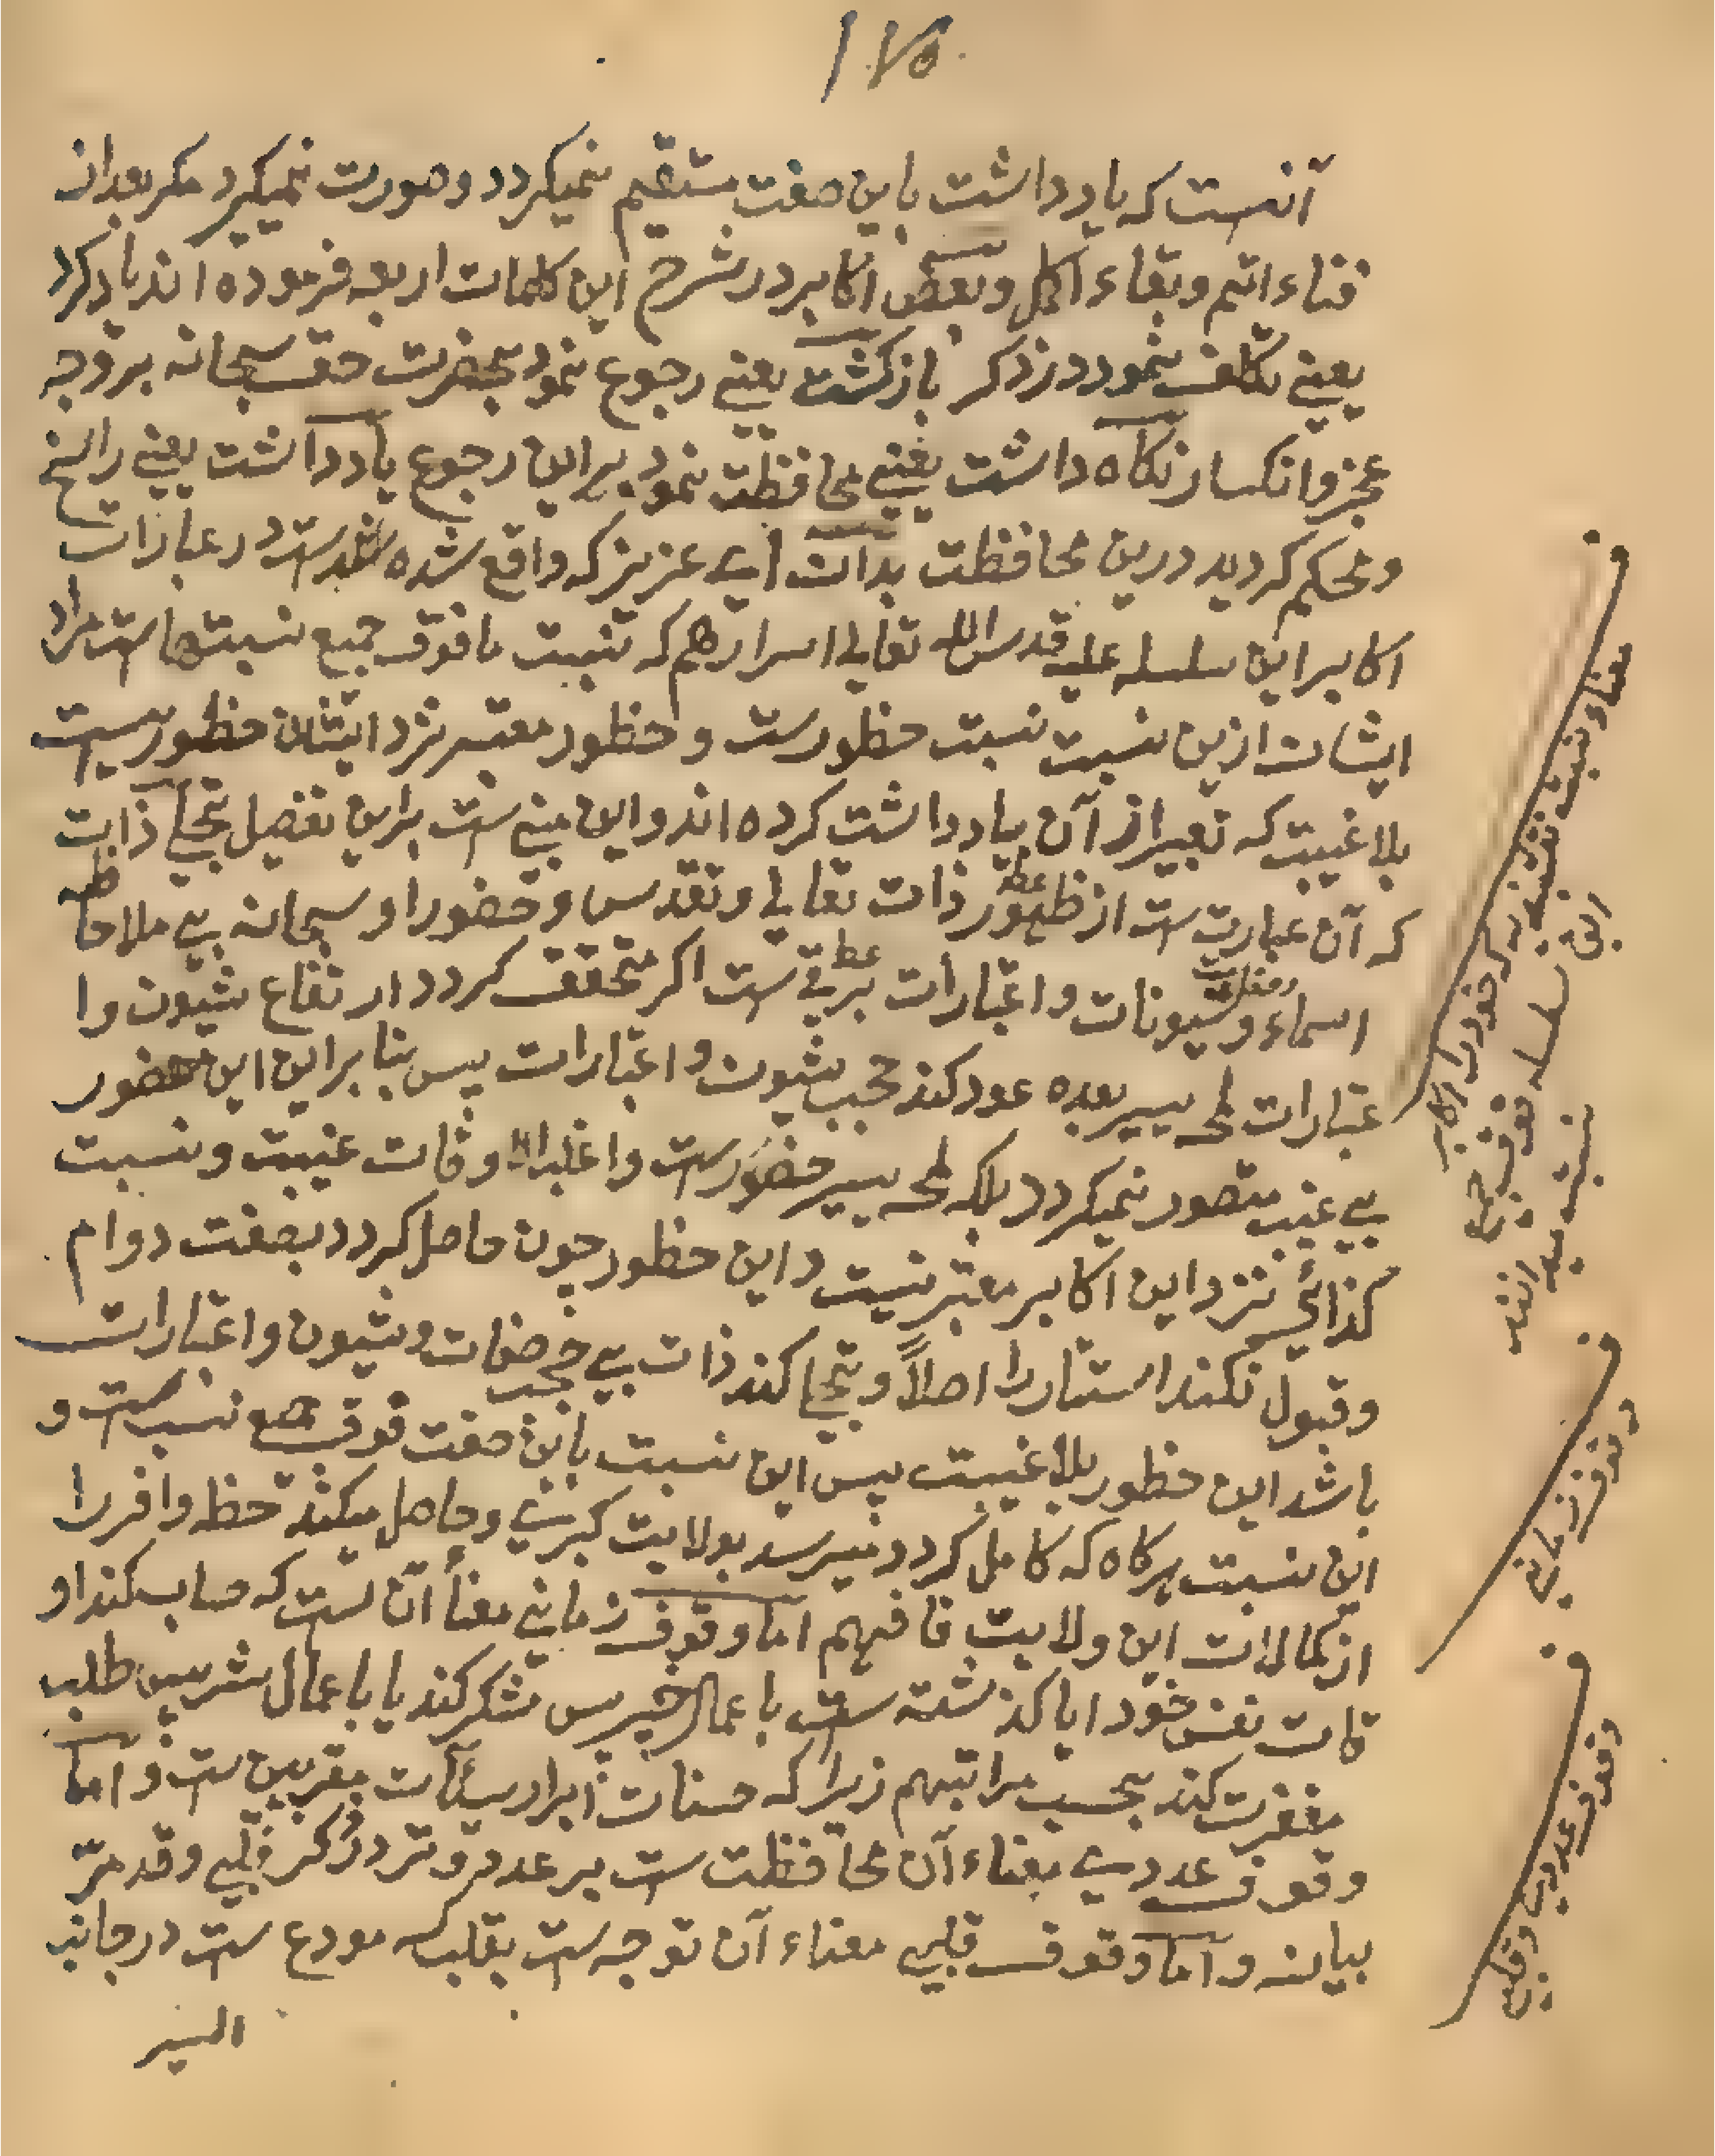 ١٧٥
آنست که یاد داشت باین صفت مستقیم نمیکردد و صورت نمیکیرد مکر بعد از
فناء اتم و بقاء اکمل و بعض اکابر در شرح این کلمات اربعه فرموده اند یاد کرد
یعنی تکلف نمود در ذکر باز کشت یعنی رجوع نمود بحضرت حق سبحانه بر وجه
عجز و انکسار نکاه داشت یعنی محافظت نمود بر این رجوع یاد داشت یعنی راسخ
و محکم کردید درین محافظت بدان ای عزیز که واقع شده است در عبارات
اکابر این سلسله علیه قدس الله تعالی اسرارهم که نسبت ما فوق جمیع نسبتها ست مراد
ایشان ازین نسبت نسبت حظور ست و حظور معتبر نزد ایشان حظوریست
بلا غیبت که تعبیر از آن بیاد داشت کرده اند و این مبنی ست براین تفصیل تجلی ذات
که آن عبارت ست از ظهور ذات تعالی و تقدس و حضور او سبحانه بی ملاحظه
اسماء و صفات و شیونات و اعتبارات برقی ست اکر متحقق کردد ارتفاع شیون و ا
عتبارات لمحه یسیر بعده عود کند حجب شیون و اعتبارات پس بنا براین این حضور
بی غیب متصور نمیکردد بلکه لمحه یسیر حضور ست و اغلب اوقات غیبت و نسبت
کذائی نزد این اکابر معتبر نیست و این حظور چون حاصل کردد بصفت دوام
و قبول نکند استتار را اصلاً و تجلی کند ذات بی حجب صفات و شیون و اعتبارات
باشد این حظور بلا غیبت پس این نسبت باین صفت فوق جمیع نسب ست و
این نسبت هرکاه که کامل کردد میرسد بولایت کبری و حاصل میکند حظ وافر را
از کمالات این ولایت فافهم اما وقوف زمانی معنأ آن ست که حساب کند او
قات نفس خود ایا کذشته ست باعمال خیر پس شکر کند یا باعمال شر پس طلب
مغفرت کند بحسب مراتبهم زیرا که حسنات ابرار سیئآت مقربین ست و اما
وقوف عددی معناء آن محافظت ست بر عدد وتر در ذکر قلبی و قد مرّ
بیانه و اما وقوف قلبی معناء آن توجه ست بقلب که مودع ست در جانب
الیسر
معناء نسبت نقشبندیه که خود را اکابر
این سلسله فوق جمیع
نسبت میدانند
وقوف زمانی
وقوف عددی و قلبی